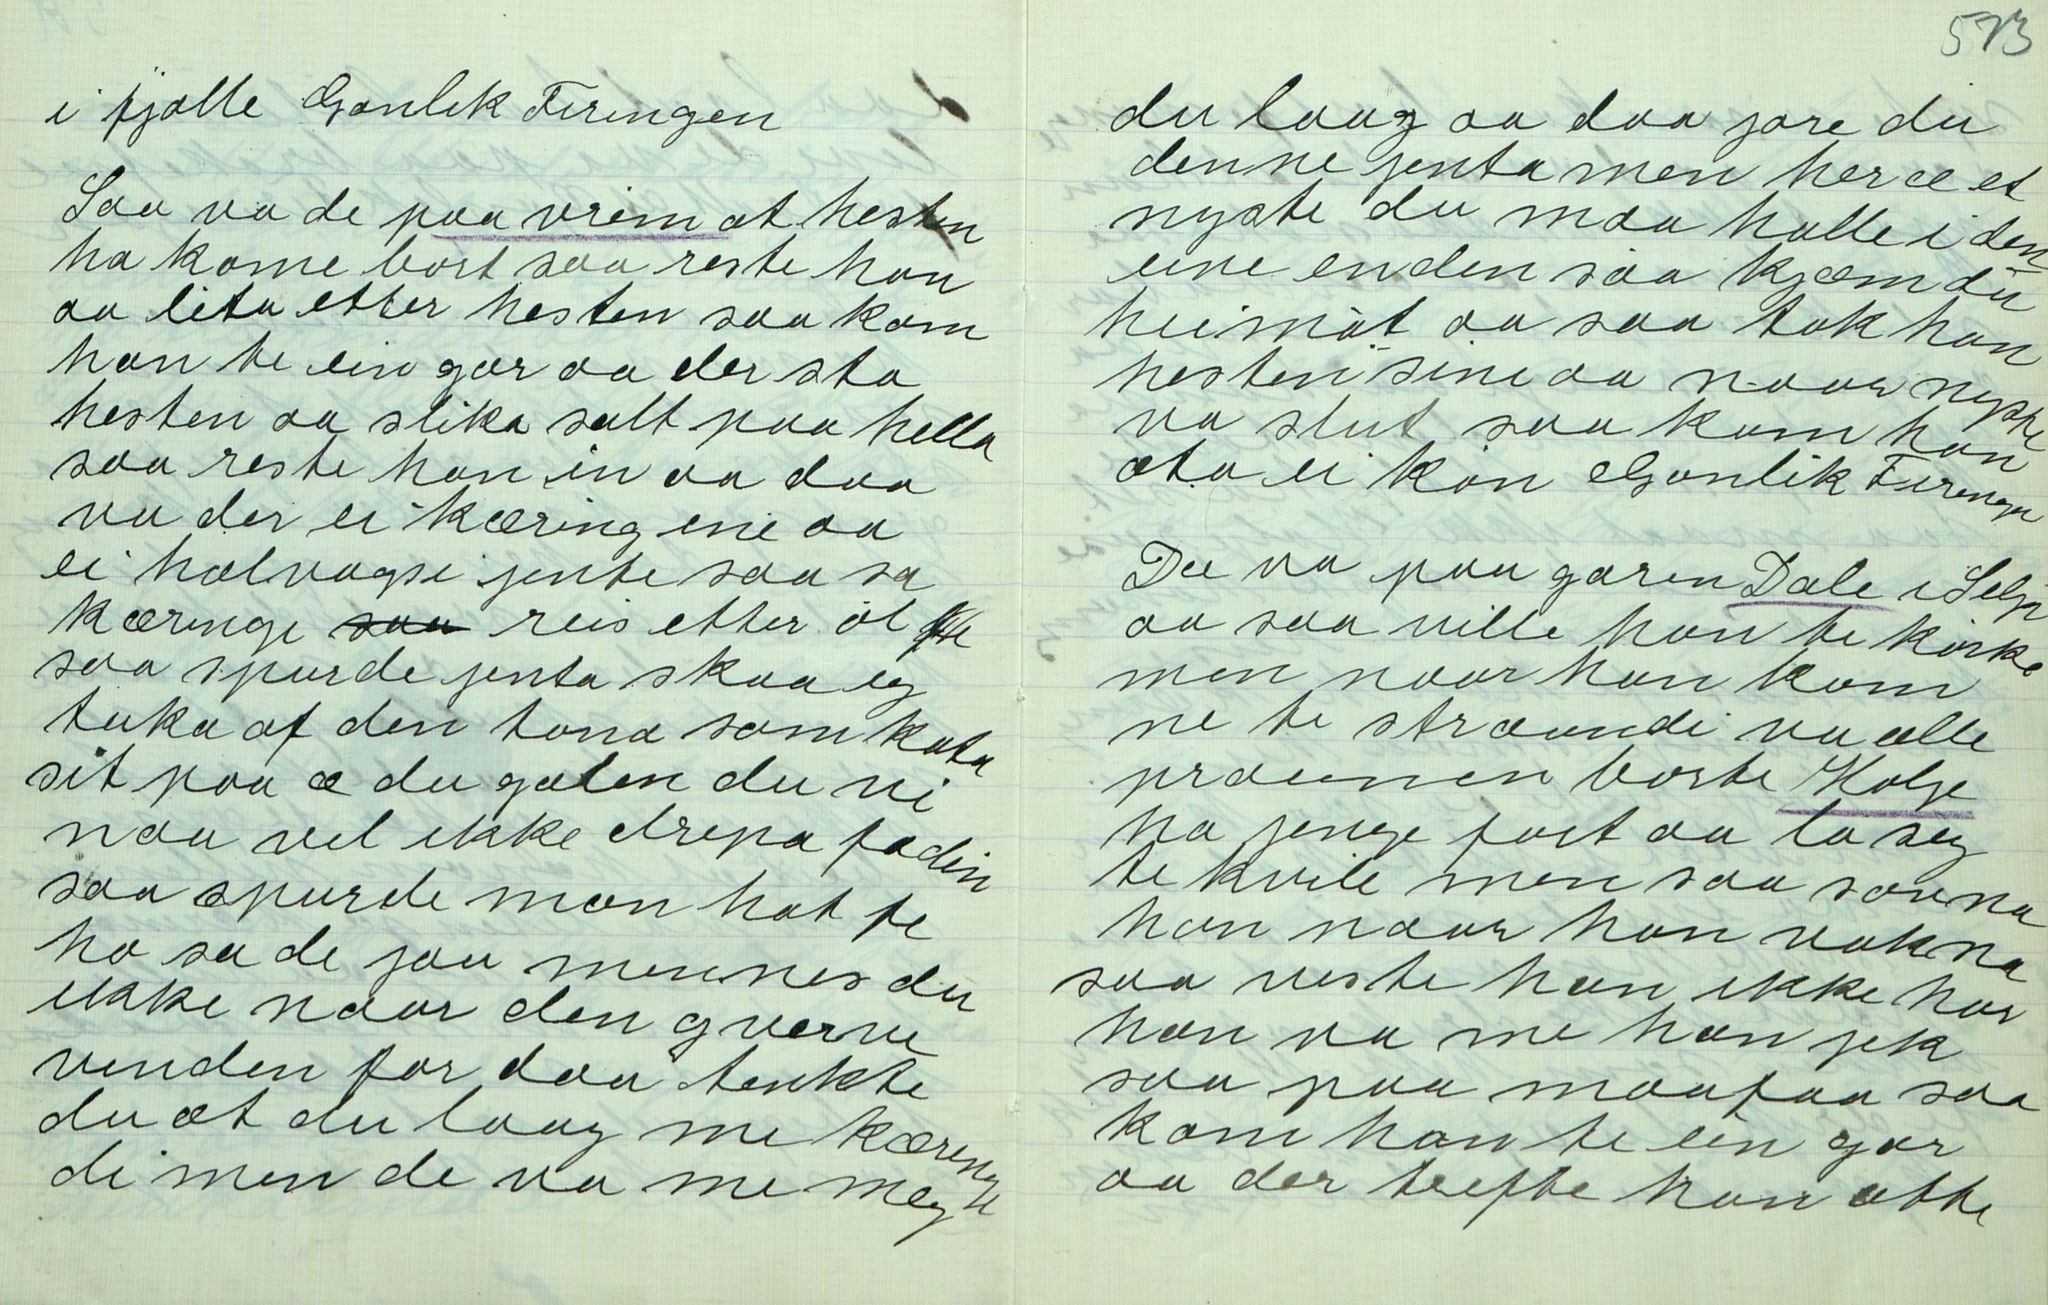 i fjølle Gonlik Firingen
Saa va de paa vrim at hesten
ha kome bort saa reste han
aa leta etter hesten saa kom
han te ein gar aa der sto
hesten aa slika salt paa hella
saa reste han in aa daa
va der ei kæring ine aa
ei halvagse jente saa sa
kæringe saa reis etter øl
saa spurde jenta skaa eg
taka af den tona som kata
sit paa æ du galen du vi
naa vel ikke drepa fa din
saa spurde man hat te
ho sa de jaa minnes du
ikke naar den gverve
vinden for daa tenkte
du at du laag me kæringe
di men de va me meg
573
du laag aa daa jore du
denne jenta men her æ et
nyste du maa halle i den
eine enden saa kjæm du
heimàt aa saa tok han
hesten sine aa naar nyste
va slut saa kom han
ata ei kôn Gonlik Firingen
De va paa garen Dale i Selje
aa saa ville han te kirke
men naar han kom
ne te straundi va alle
praumen borte Holje
ha jenge fort aa la seg
te kvile men saa sovna
han naar han vakna
saa viste han ikke hor
han va me han jek
saa paa maafaa saa
kom han te ein gar
aa der trefte han atte